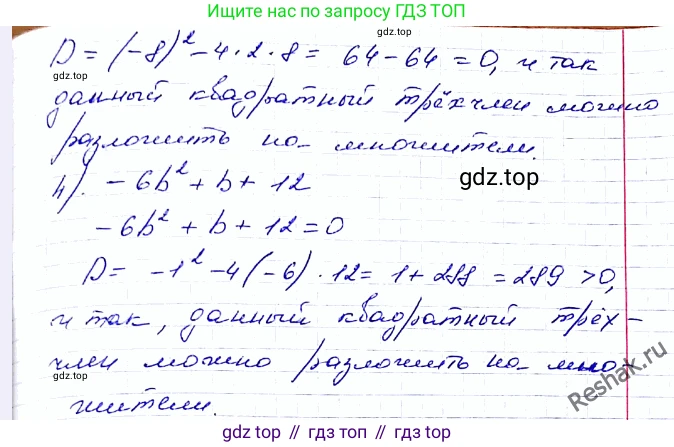 Ищите нас по запросу ГДЗ ТОП
D = (-8)² - 4·2·8 = 64 - 64 = 0, и так
gdz.top
gdz.top
данный квадратный трёхчлен можно
разложить на множители.
gdz.top
4). -6b² + b + 12
-6b² + b + 12 = 0
D = -1² - 4(-6)·12 = 1 + 288 = 289 > 0,
gdz.top
и так, данный квадратный трёх-
член можно разложить на мно-
жители.
Reshak.ru
gdz top // гдз топ // gdz.top